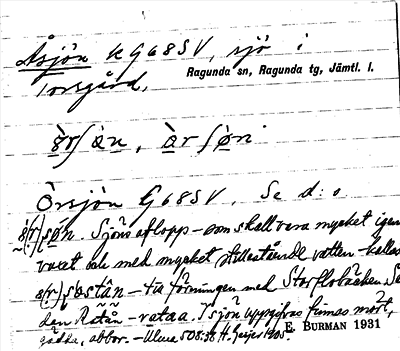 Åsjön k G68SV, sjö i
Torsgård,
Ragunda sn, Ragunda tg, Jämtl. l.
Örsjön G68SV. Se d:o
Sjöns aflopp – som skall vara mycket igen
vuxet och med mycket stillastående vatten – kallas
– till föreningen med Storflobäcken. Se
den Åstån – rataa. I sjön uppgifvas finnas mört,
gädda, abbor. – Ulma 508:38 H. Geijer 1905.
E. BURMAN 1931